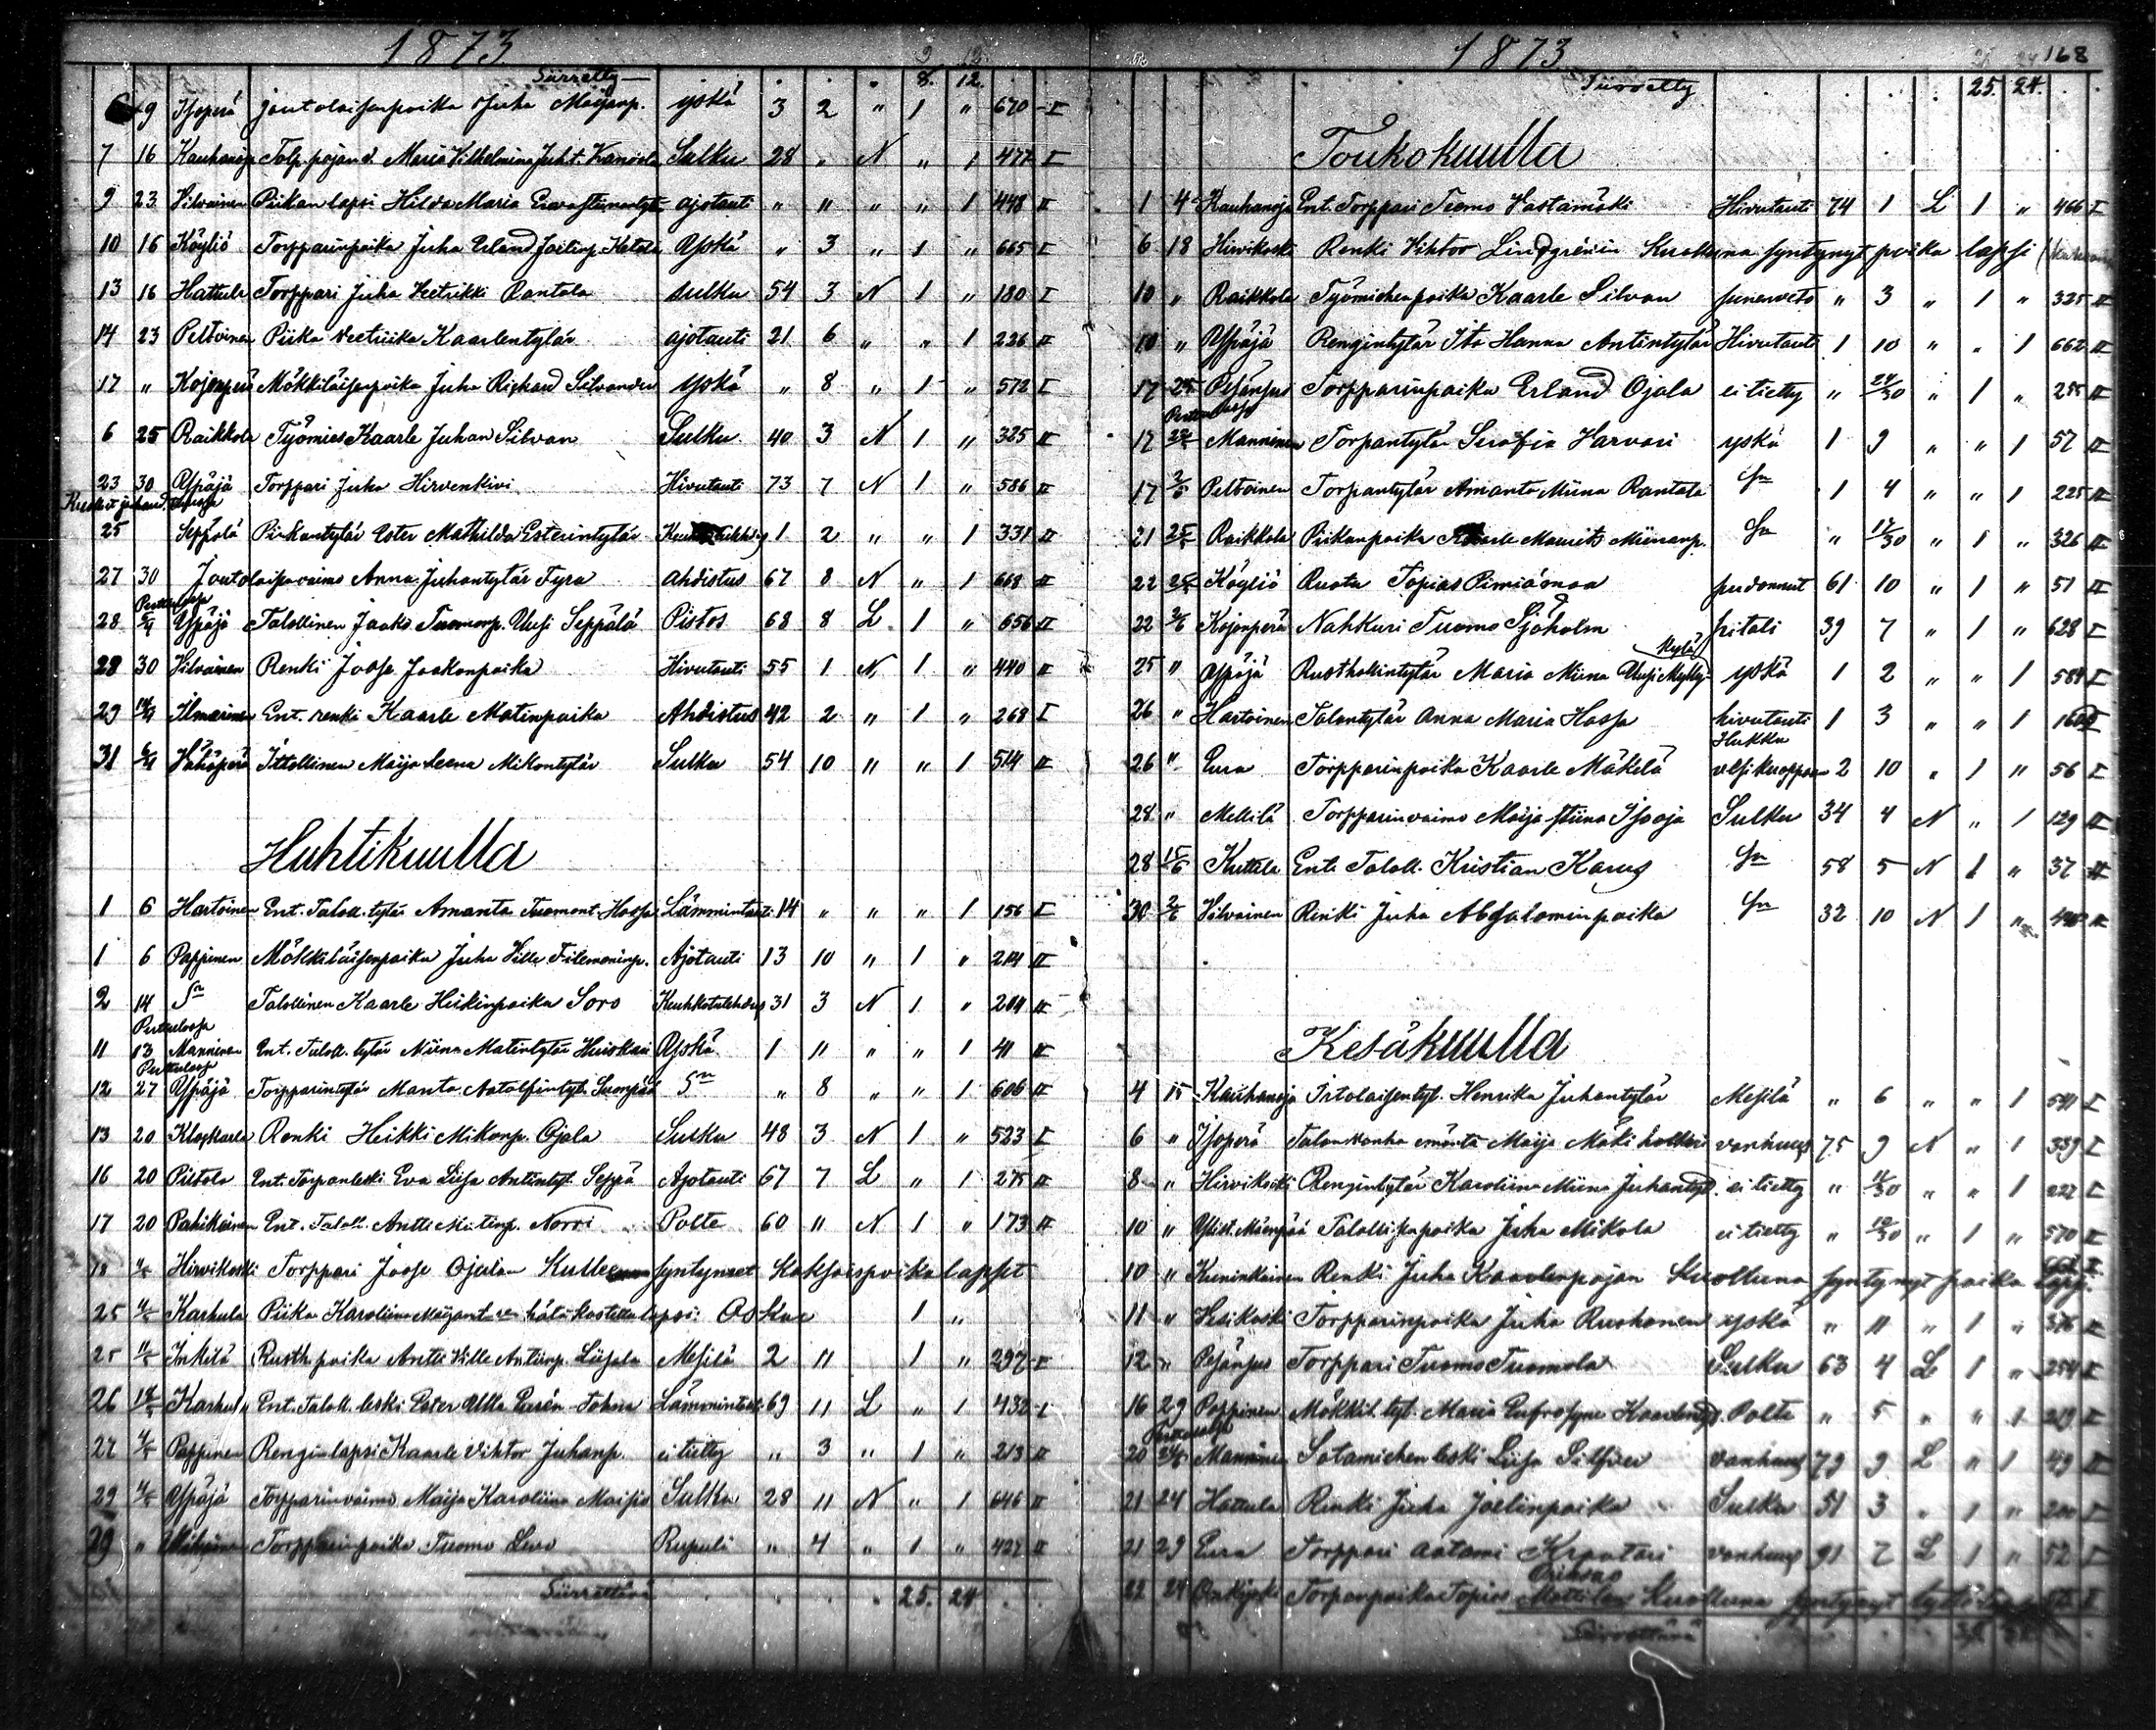 1873
Siirretty 8. 12.
6 9 Isoperä joutolaisenpoika Juha Maijanp. yskä 3 2 " 1 " 670 I
7 16 Kauhanoja Tolp. pojand. Maria Vilhelmina Juh.t. Sulku 28 " N " 1 477 I
9 23 Hilvainen Piikan lapsi Hilda Maria ajotauti " " " " 1 448 II
10 16 Köyliö Torpparinpoika Juha Erland Joelinp. Ketola Yskä " 3 " 1 " 665 I
13 16 Hattula Torppari Juha Veetrikki Rantala sulku 54 3 N 1 " 180 I
14 23 Peltoinen Piika Veetriika Kaarlentytär ajotauti 21 6 " " 1 226 II
17 " Kojonperä Mökkiläisenpoika Juha Richard Silvander Yskä " 8 " 1 " 572 I
6 25 Raikkola Työmies Kaarle Juhan Silvan Sulku 40 3 N 1 " 325 II
23 30 Ypäjä Torppari Juha Hirvenkivi Hivutauti 73 7 N 1 " 586 II
25 Seppälä Piikantytär Ester Mathilda Esterintytär 1 2 " " 1 331 II
27 30 Joutolaisvaimo Anna Juhantytär Fyra Ahdistus 67 8 N " 1 668 II
Perttulassa
28 5/4 Ypäjä Talollinen Jaako Tuomanp. Uusi Seppälä Pistos 68 8 L 1 " 656 II
28 30 Hilvainen Renki Joose Jaakonpoika Hivutauti 55 1 N 1 " 440 II
29 14/4 Ilmarinen Ent. renki Kaarle Matinpoika Ahdistus 42 2 " 1 " 268 I
31 6/4 Vähäperä Ittellinen Maija Leena Mikontytär Sulku 54 10 " " 1 514 II
Huhtikuulla
1 6 Hartoinen Ent. Taloll. tytär Amanta Tuomont. Hossa Lämmintauti 14 " " " 1 156 I
1 6 Pappinen Mökkiläisenpoika Juha Ville Filemoninp. Ajotauti 13 10 " 1 " 214 II
2 14 Sn Talollinen Kaarle Heikinpoika Soro Keuhkotulehdus 31 3 N 1 " 204 II
Perttulassa
11 13 Manninen Ent. Taloll. tytär Miina Matintytär Huiskari Yskä 1 11 " " 1 41 II
Perttulassa
12 27 Ypäjä Torpparintytär Manta Aatolfintyt. Suonpää Sn " 8 " " 1 606 II
13 20 Kloskarla Renki Heikki Mikonp. Ojala Sulku 48 3 N 1 " 523 I
16 20 Piltola Ent. Torpanleski Eva Liisa Antintyt. Seppä Ajotauti 67 7 L " 1 275 II
17 20 Pahikainen Ent. Taloll. Antti Matinp. Norri Polte 60 11 N 1 " 173 II
18 4/5 Hirvikoski Torppari Joose Ojalan Kulleena syntyneet kaksoispoika lapset
25 4/5 Karhula Piika Karoliina Maijant:ren hätä kastettu lapsi Oskar 1 "
25 11/5 Inkilä Rusth. poika Antti Ville Antinp. Liipola Mesilä 2 11 1 " 297 I
26 18/5 Karhula Ent. Taloll. leski Ester Ulla Lämmintauti 69 11 L " 1 432 I
27 4/5 Pappinen Rengin lapsi Kaarle Viktor Juhanp. ei tietty " 3 " 1 " 213 II
29 4/5 Ypäjä Torpparinvaimo Maija Karoliina Maisio Sulku 28 11 N " 1 646 II
29 " Torpparinpoika Tuomo Levo Rupuli " 4 " 1 " 427 II
Siirrettävä 25. 24.
1873 168
Siirretty 25. 24.
Toukokuulla
1 4 Kauhanoja Ent. Torppari Tuomo Vastamäki Hivutauti 74 1 L 1 " 466 I
6 18 Hirvikoski Renki Vihtor Lindgrénin Kuolluna syntynyt poika lapsi
10 " Raikkola Työmiehenpoika Kaarle Silvan suneveto " 3 " 1 " 325 II
10 " Ypäjä Rengintytär Ita Hanna Antintytär Hivutauti 1 10 " " 1 662 II
17 25 Pesänsuo Torpparinpoika Erland Ojala ei tietty " 24/30 " 1 " 285 II
Perttulassa
17 Manninen Torpantytär Serafia Harvari yskä 1 9 " " 1 57 II
17 2/6 Peltoinen Torpantytär Amanta Miina Rantala Sn 1 4 " " 1 225 II
21 25 Raikkola Piikanpoika Kaarle Maurits Miinanp. Sn " 17/30 " 1 " 326 II
22 25 Köyliö Ruotu Topias Pimiäomaa pudonnut 61 10 " 1 " 51 II
22 2/6 Kojonperä Nahkuri Tuomo Sjöholm pitali 39 7 " 1 " 628 I
25 " Ypäjä Rusthollintytär Maria Miina Uusi Kylä yskä 1 2 " " 1 584 I
26 " Hartoinen Talontytär Anna Maria Hossa hivutauti 1 3 " " 1
26 " Eura Torpparinpoika Kaarle Mäkelä Hukku vesikuoppaan 2 10 " 1 " 56 I
28 " Mellilä Torpparinvaimo Maija Stiina Isooja Sulku 34 4 N " 1 129 II
28 15/6 Kuttila Ent. Taloll. Kristian Karus Sn 58 5 N 1 " 37 II
30 2/6 Hilvainen Renki Juha Absalominpoika Sn 32 10 N 1 "
Kesäkuulla
4 15 Kauhanoja Irtolaisentyt. Henrika Juhantytär Mesilä " 6 " " 1 541 I
6 " Isoperä Talon vanha emäntä Maija Mäki vanhuus 75 9 N " 1 339 I
8 " Hirvikoski Rengintytär Karoliina Miina Juhantyt. ei tietty " " " 1 222 I
10 " Talollisenpoika Juha Mikola ei tietty " " 1 " 570 II
10 " Kuninkainen Renki Juha Kaarlenpojan Kuolluna syntynyt poika lapsi
11 " Torpparinpoika Juha Ruohonen yskä " 11 " 1 " 376 II
12 " Pesänsuo Torppari Tuomo Tuomola Sulku 63 4 L 1 " 284 II
16 29 Pappinen Mökkil. tyt. Maria Eufrosyne Kaarlentyt. Polte " 5 " " 1 219 II
Perttulassa
20 24/6 Manninen Sotamiehen leski Liisa Silfver vanhuus 79 9 L " 1 49 II
21 24 Hattula Renki Juha Joelinpoika Sulku 51 3 " 1 " 200 I
21 29 Eura Torppari Aatami Kraatari vanhuus 91 7 L 1 " 52 I
22 24 Torpanpoika Topias Mattilan Kuolluna syntynyt tyttö
Siirrettävä